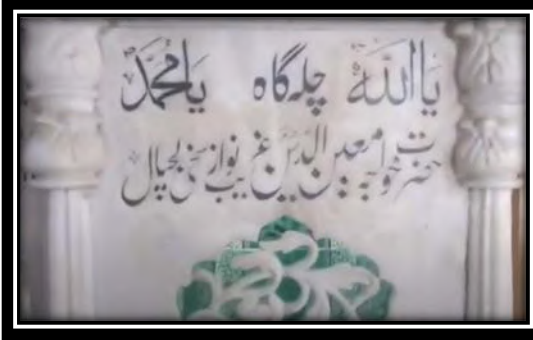 یا اللہ چلہ گاہ یا محمدؐ
حضرت خواجہ معین الدین غریب نواز سخی لجپال